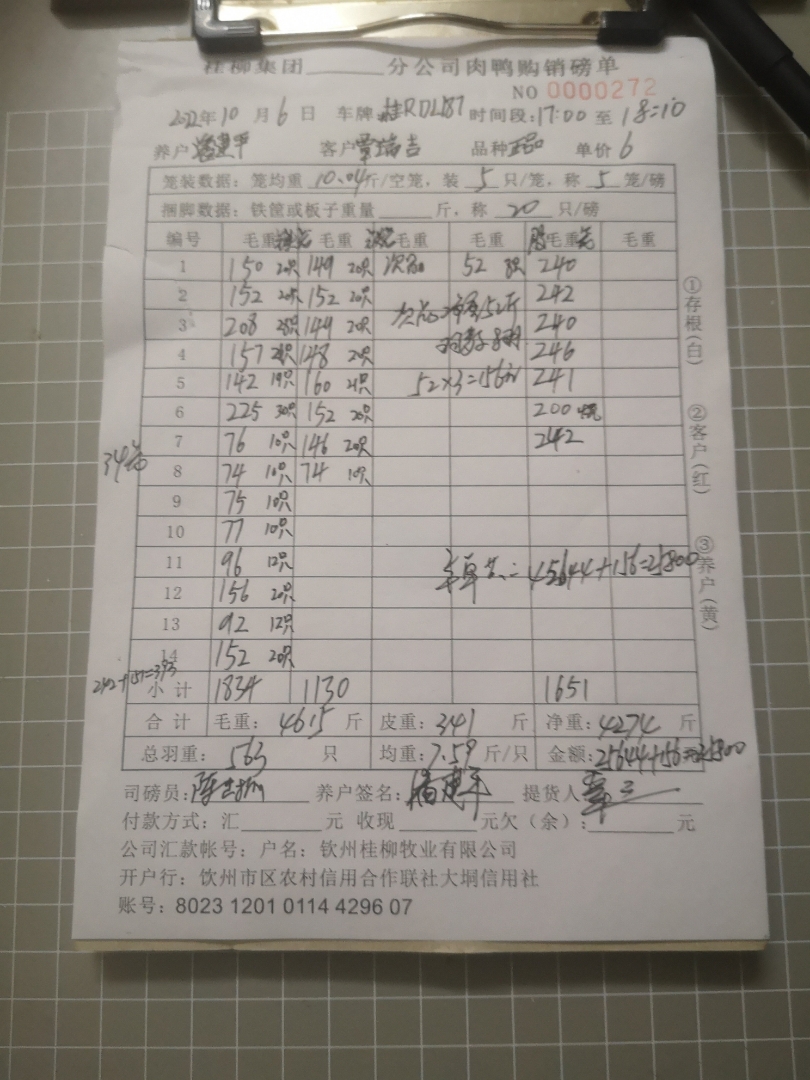 桂柳集团 分公司肉鸭购销磅单
NO 0000272
2022年10月6日 车牌:桂RDL187 时间段:17:00至18:10
养户 潘建平 客户 品种 正品 单价 6
笼装数据: 笼均重 10.04斤/空笼, 装 5 只/笼, 称 5 笼/磅
捆脚数据: 铁筐或板子重量 斤, 称 20 只/磅
编号 毛重 毛重 毛重 毛重 毛重 毛重
1 150 20只 149 20只 次品 52 8只 240
2 152 20只 152 20只 242
次品:净重152斤
3 208 28只 149 20只 240
4 157 148 20只 246
5 142 19只 160 21只 52×3=156元 241
6 225 30只 152 20只 200
7 76 10只 146 20只 242
34笼
8 74 10只 74 10只
9 75 10只
10 77 10只
11 96 12只 45644+156=25800
12 156 20只
13 92 12只
14 152 20只
小计 1834 1130 1651
合计 毛重: 4615 斤 皮重: 341 斤 净重: 4274 斤
总羽重: 563 只 均重: 7.59 斤/只 金额: 25644+156=25800
司磅员: 养户签名: 潘建平 提货人
付款方式: 汇 元 收现 元欠(余): 元
公司汇款帐号: 户名: 钦州桂柳牧业有限公司
开户行: 钦州市区农村信用合作联社大垌信用社
账号: 8023 1201 0114 4296 07
①存根(白)
②客户(红)
③养户(黄)